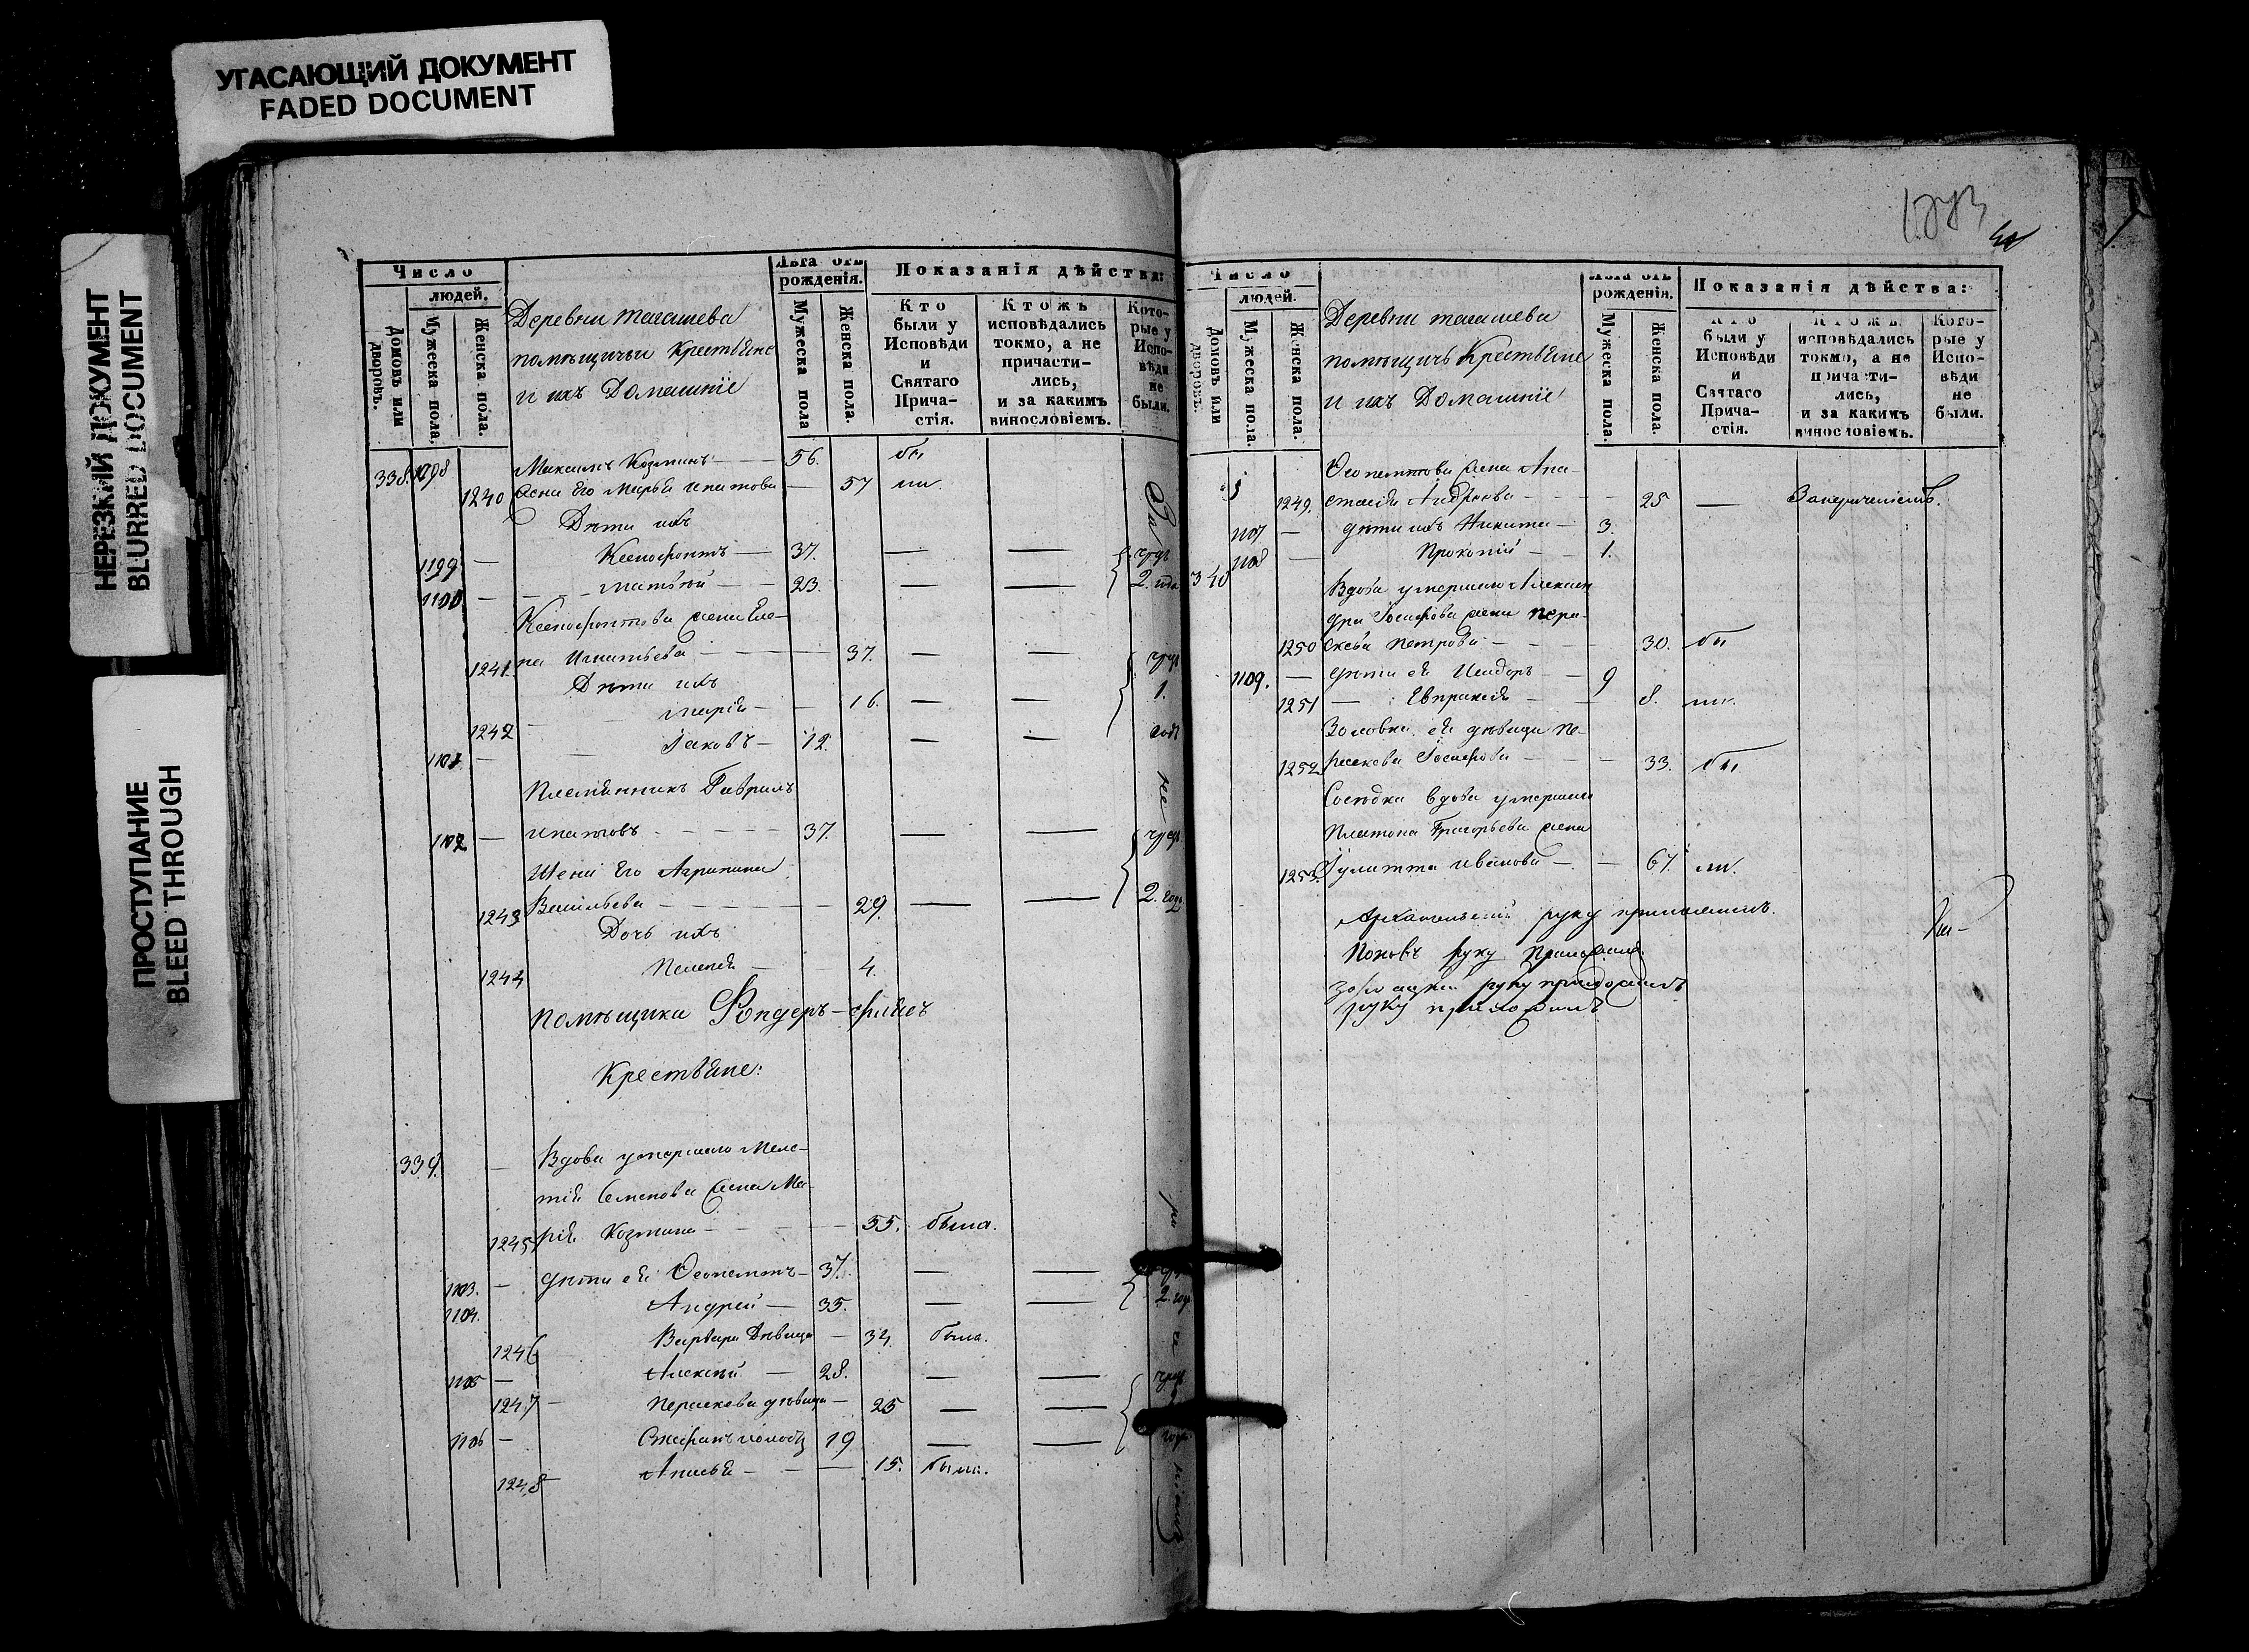 УГАСАЮЩИЙ ДОКУМЕНТ
FADED DOCUMENT
НЕРЕЗКИЙ ДОКУМЕНТ
BLURRED DOCUMENT
ПРОСТУПАНИЕ
BLEED THROUGH
Число
людей.
Домовъ или дворовъ.
Мужеска пола.
Женска пола.
Деревни
помѣщичьи Крестьяне
и ихъ Домашніе
Лѣта отъ рожденія.
Мужеска пола
Женска пола.
Показанія дѣйства:
Кто были у Исповѣди и Святаго Причастія.
Ктожъ исповѣдались токмо, а не причастились, и за какимъ винословіемъ.
Которые у Исповѣди не были.
338. Максимъ Козминъ — 56. бы
1240 жена Его Марья Ипатова — 57 ли.
Дѣти ихъ
1199 — Ксенофонтъ — 37. — —
1100 — Матвѣй — 23. — —
Ксенофонтова жена Еле-
1241. на Игнатьева — 37. — —
Дѣти ихъ
1242 Марія — 16. — —
1101 — Іаковъ — 12. — —
Племянникъ Гаврилъ
1102 — Ипатовъ — 37. — —
Жена Его Агрипина
1243 Васильева — 29. — —
Дочь ихъ
1244 Пелагея — 4.
помѣщика
Крестьяне:
339. — Вдова умершаго Меле-
тія Семенова жена Ма-
1245 рія Козмина — 55. была.
1103. — дѣти ея Феопемптъ — 37. — —
1104. Андрей — 35. — —
1246 Варвара Дѣвица — 34. была.
1105 — Алексѣй — 28. — —
1247 — Параскева дѣвица — 25 — —
1106 — Стефанъ холостъ 19 — —
1248 Анисья — 15. была.
Число
людей.
Домовъ или дворовъ.
Мужеска пола.
Женска пола.
Деревни
помѣщичьи Крестьяне
и ихъ Домашніе
Лѣта отъ рожденія.
Мужеска пола.
Женска пола.
Показанія дѣйства:
Кто были у Исповѣди и Святаго Причастія.
Ктожъ исповѣдались токмо, а не причастились, и за какимъ винословіемъ.
Которые у Исповѣди не были.
Феопемптова жена Ана-
1249. стасія Андреева — 25 —
1107 — дѣти ихъ Никита — 3.
1108 — Прокопій — 1.
340 Вдова умершаго Алексан
дра Іосифова жена Пара-
1250 скева Петрова — 30. бы
1109. — дѣти ея Исидоръ — 9
1251 — Евпраксія — 8. ли.
Золовка ея дѣвица Па-
1252 раскева Іосифова — 33. бы
Сосѣдка вдова умершаго
Платона Григорьева жена
1253. Іулитта Иванова — 67. ли.
руку приложилъ.
Поповъ руку приложилъ
руку приложилъ
руку приложилъ